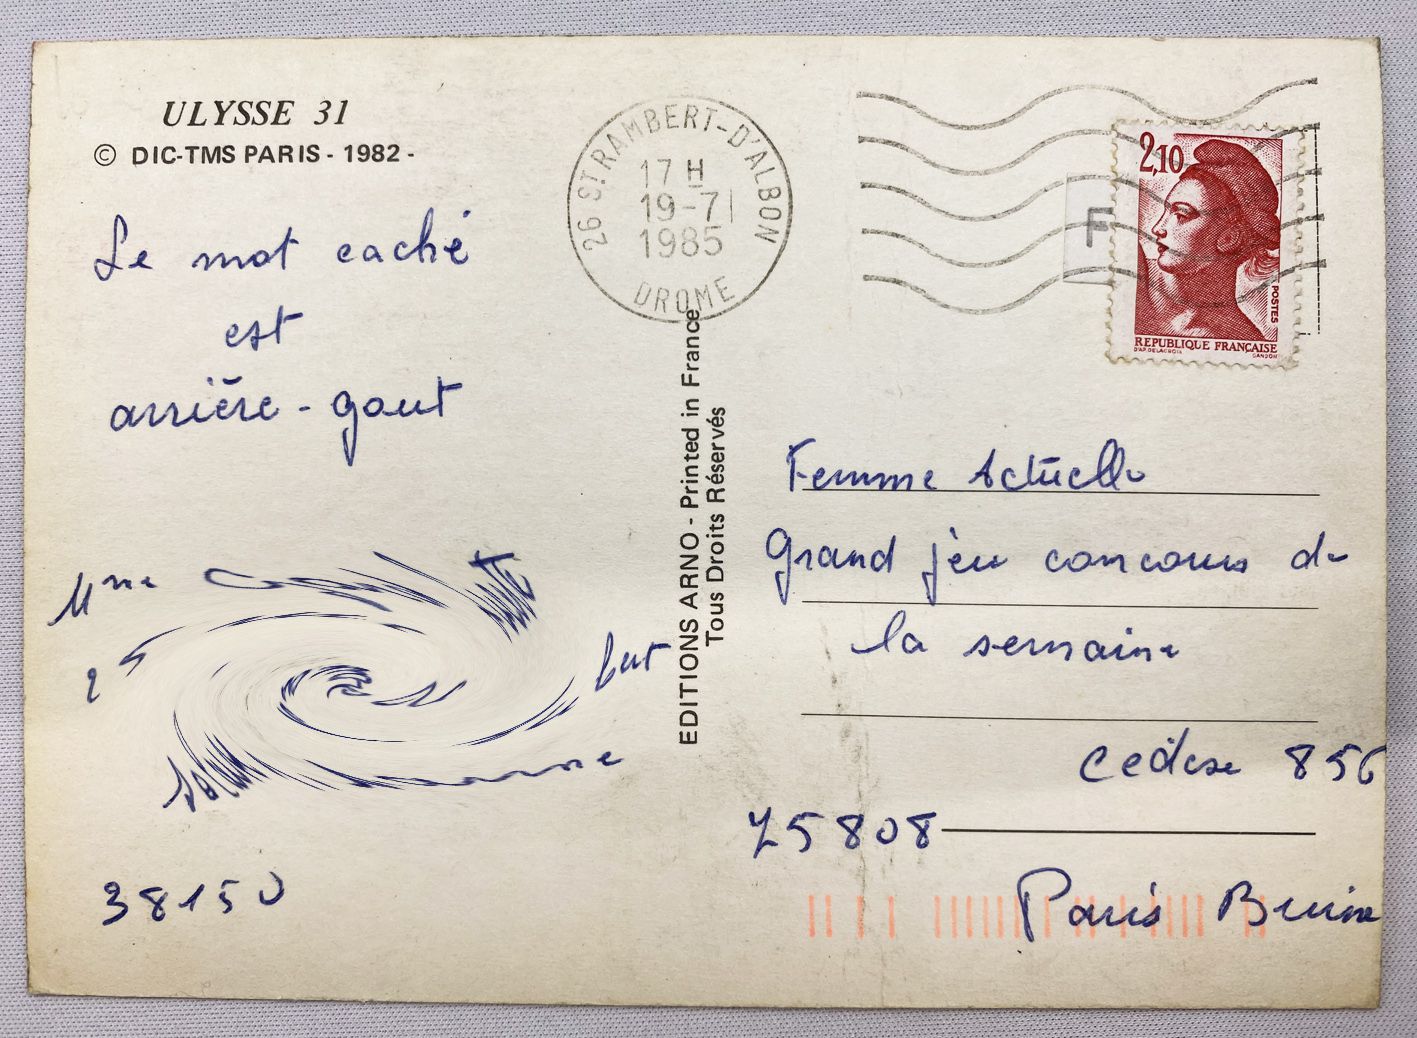 ULYSSE 31
© DIC-TMS PARIS - 1982 -
Le mot caché
est
arrière-gout
Mme
38150
26 ST.RAMBERT-D'ALBON
17 H
19-7
1985
DROME
EDITIONS ARNO - Printed in France
Tous Droits Réservés
F
2,10
POSTES
REPUBLIQUE FRANÇAISE
D'AP. DELACROIX GANDON
Femme Actuelle
Grand jeu concours de
la semaine
cedex 856
75808
Paris